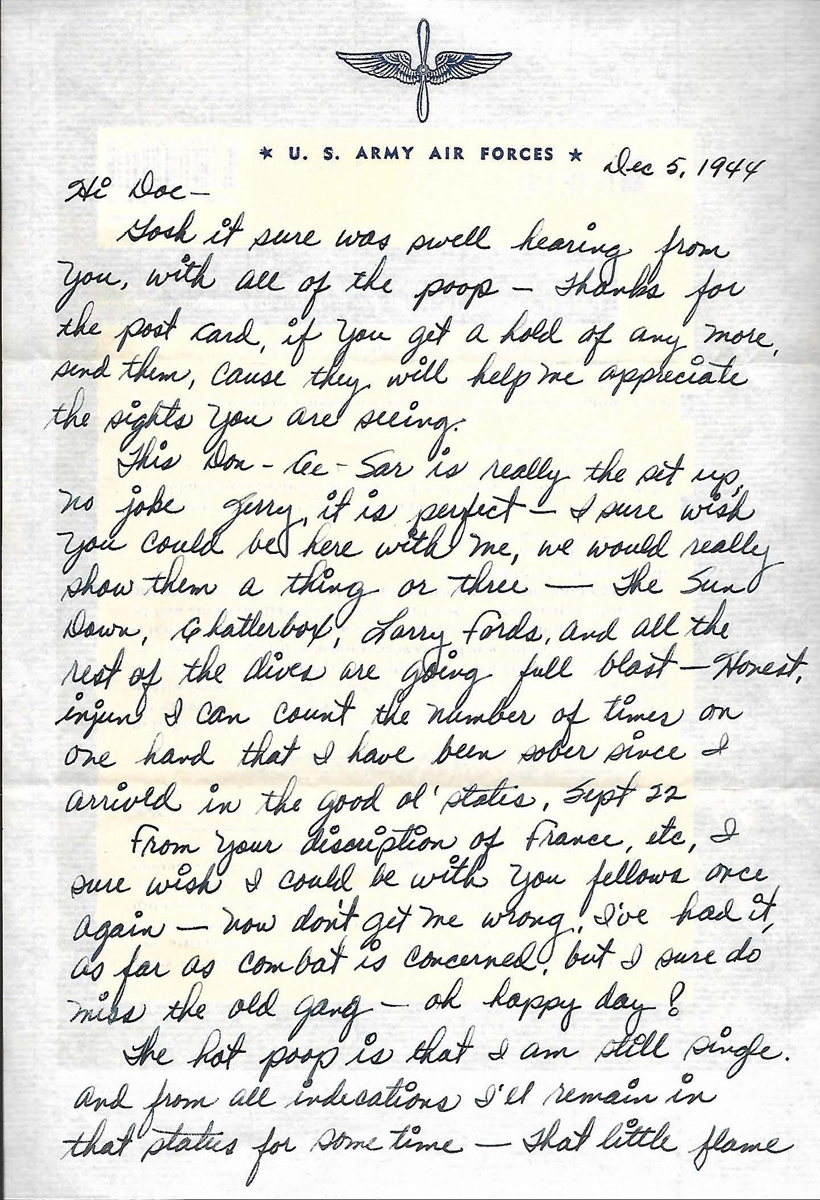 ★ U. S. ARMY AIR FORCES ★
Dec 5, 1944
Hi Doc—
Gosh it sure was swell hearing from
you, with all of the poop — Thanks for
the post card, if you get a hold of any more,
send them, cause they will help me appreciate
the sights you are seeing.
This Don - Ce - Sar is really the set up,
no joke Jerry, it is perfect — I sure wish
you could be here with me, we would really
show them a thing or three — The Sun
Down, Chatterbox, Larry Fords, and all the
rest of the dives are going full blast — Honest,
injun I can count the number of times on
one hand that I have been sober since I
arrived in the good ol' states, Sept 22
From your discription of France, etc, I
sure wish I could be with you fellows once
again — now don't get me wrong, I've had it,
as far as combat is concerned, but I sure do
miss the old gang — oh happy day!
The hot poop is that I am still single.
and from all indications I'll remain in
that status for some time — That little flame